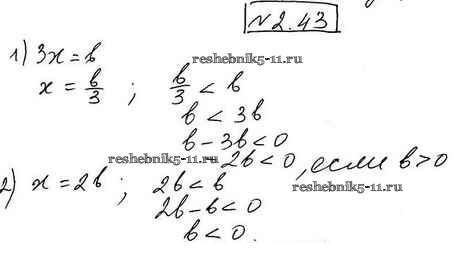 №2.43
1) 3x = b
reshebnik5-11.ru
x = b/3 ; b/3 < b
b < 3b
b - 3b < 0
reshebnik5-11.ru
-2b < 0, если b > 0
2) x = 2b ; 2b < b
reshebnik5-11.ru
2b - b < 0
b < 0.